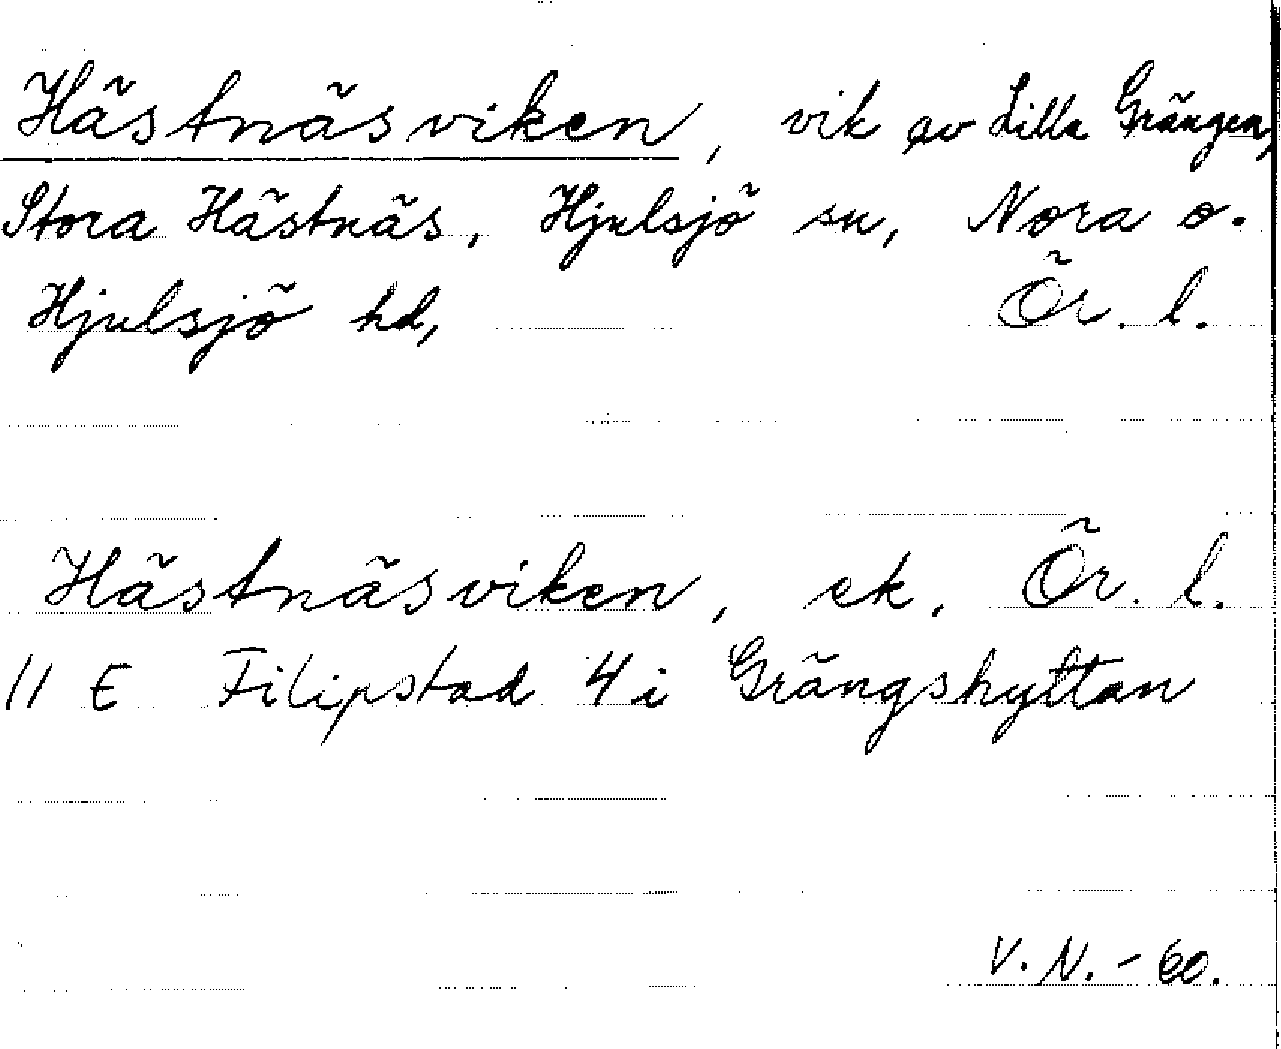 Hästnäsviken, vik av Lilla Grängen,
Stora Hästnäs, Hjulsjö sn, Nora o.
Hjulsjö hd, Ör. l.
Hästnäsviken, ek. Ör. l.
11 E Filipstad 4 i Grängshyttan
V. N. - 60.